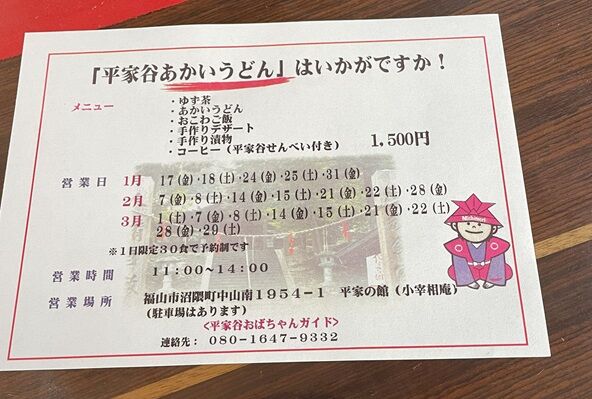 「平家谷あかいうどん」はいかがですか！
メニュー ・ゆず茶
・あかいうどん
・おこわご飯
・手作りデザート
・手作り漬物
・コーヒー（平家谷せんべい付き） 1,500円
営業日 1月 17(金)・18(土)・24(金)・25(土)・31(金)
2月 7(金)・8(土)・14(金)・15(土)・21(金)・22(土)・28(金)
3月 1(土)・7(金)・8(土)・14(金)・15(土)・21(金)・22(土)
28(金)・29(土)
※１日限定３０食で予約制です
営業時間 11:00~14:00
営業場所 福山市沼隈町中山南１９５４－１ 平家の館（小宰相庵）
（駐車場はあります）
<平家谷おばちゃんガイド>
連絡先： 080-1647-9332